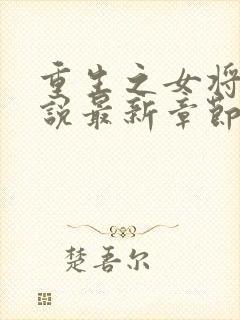 重生之女将
说最新章节
楚吾尔